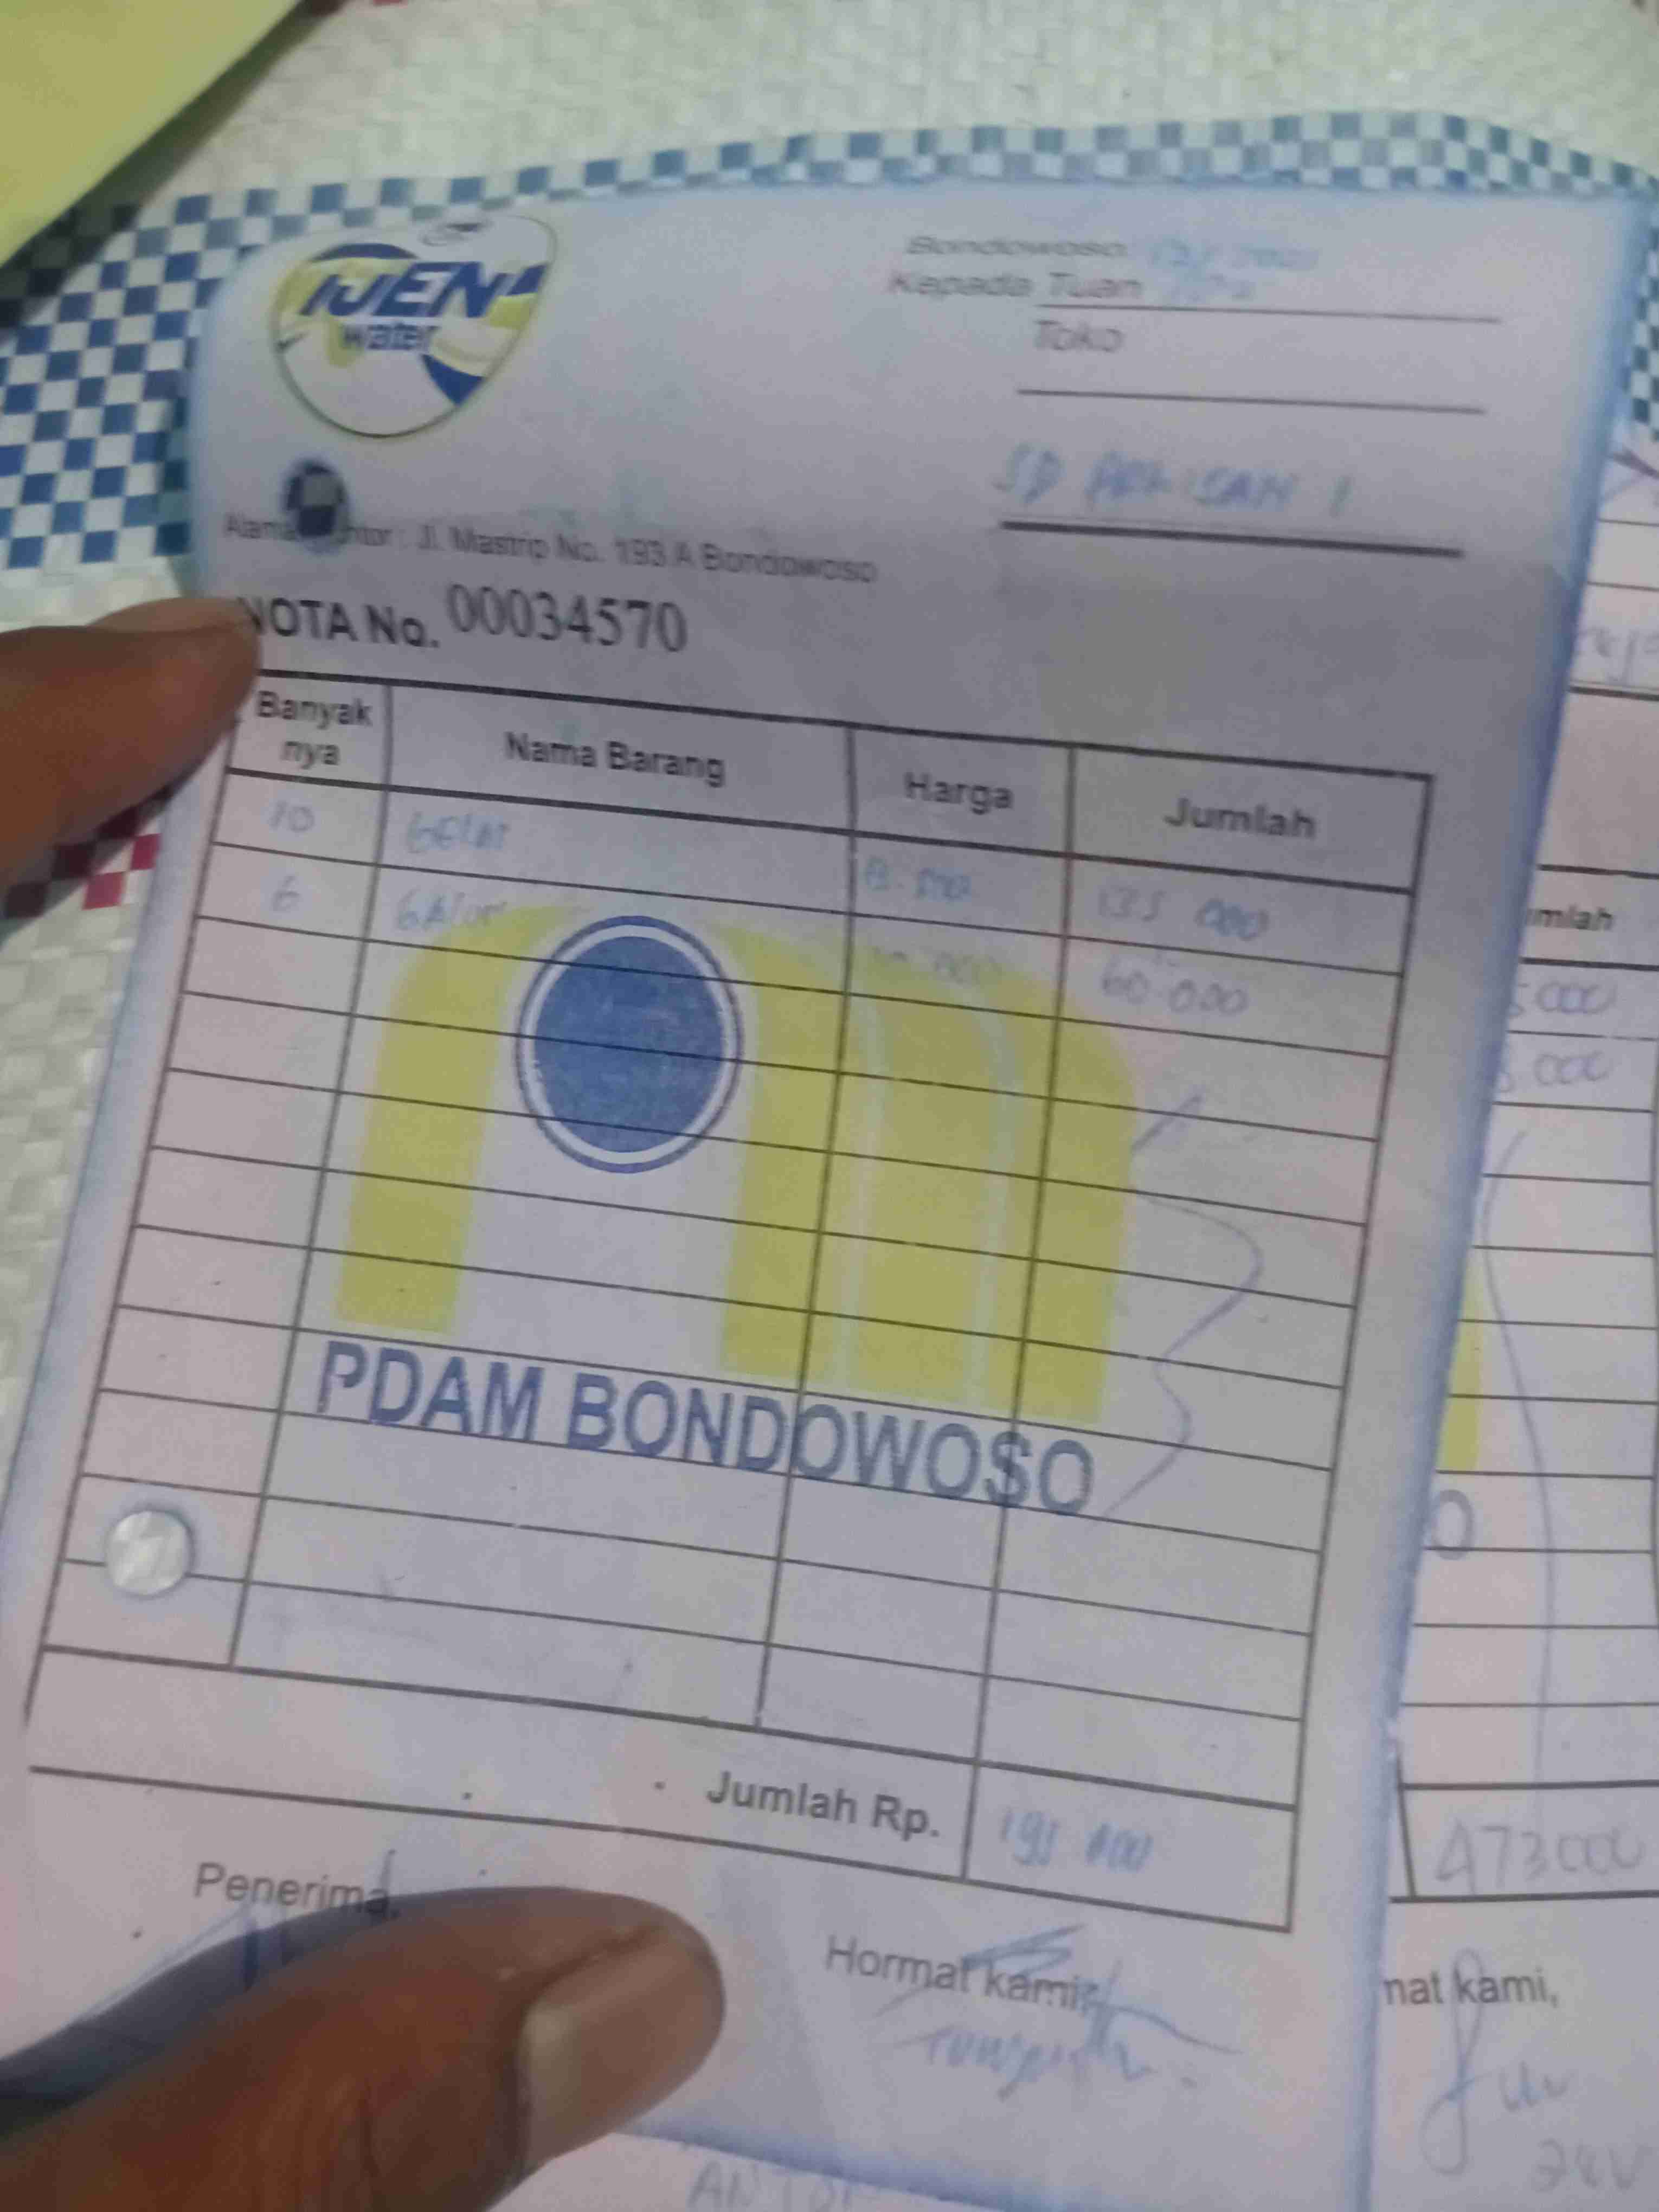 IJEN
water
Bondowoso
Kepada Tuan
Toko
SD ARDISAN 1
Alamat Kantor : Jl. Mastrip No. 193 A Bondowoso
NOTA No. 00034570
Banyak nya Nama Barang Harga Jumlah
10 GELAS 13.500 135 000
6 GAlon 10.000 60.000
PDAM BONDOWOSO
Jumlah Rp. 195 000
Penerima,
Hormat kami,
mlah
000
000
O
473000
mat kami,